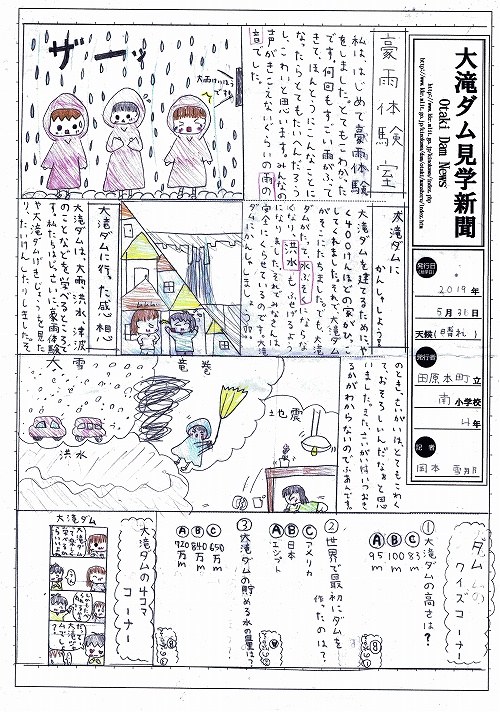 大滝ダム見学新聞
Otaki Dam News
発行日
2019年
5月31日
天候(晴れ)
発行者
田原本町立
南小学校
4年
記者
豪雨体験室
私は、はじめて豪雨体験
をしました。とてもこわかった
です。何回もすごい雨がふって
きて、ほんとうにこんなことに
なったらとてもたいへんだろう
し、こわいと思います。みんなの
声がきこえないぐらいの雨の
音でした。
ザーッ
大滝ダムに
かんしゃしよう!
大滝ダムを建てるために、や
く400けんほどの家がひっこ
してくれました。それで、大滝
ダムがたって、水ぶそくにならな
くなり、洪水もふせげるよう
になりました。
大滝ダムに行った感想
大滝ダムは、大雨、洪水、津波
のことなどを、学べるところで
す。私たちは、じっさいに豪雨体験
や大滝ダムげきじょうを見た
り、たいけんしたりしました。そ
のとき、さいがいは、とてもこわく
て、おそろしいんだなぁと思
いました。また、さいがいはいつおき
るかがわからないのでふあんです。
大雪
竜巻
地震
洪水
ダムの
クイズコーナー
①大滝ダムの高さは?
Ⓒ83m
Ⓑ100m
Ⓐ95m
②世界で最初にダムを
作ったのは?
Ⓒアメリカ
Ⓑ日本
Ⓐエジプト
③大滝ダムの貯める水の量は?
Ⓒ650万m
Ⓑ840万m
Ⓐ720万m
大滝ダムの4コマ
コーナー
大滝ダム